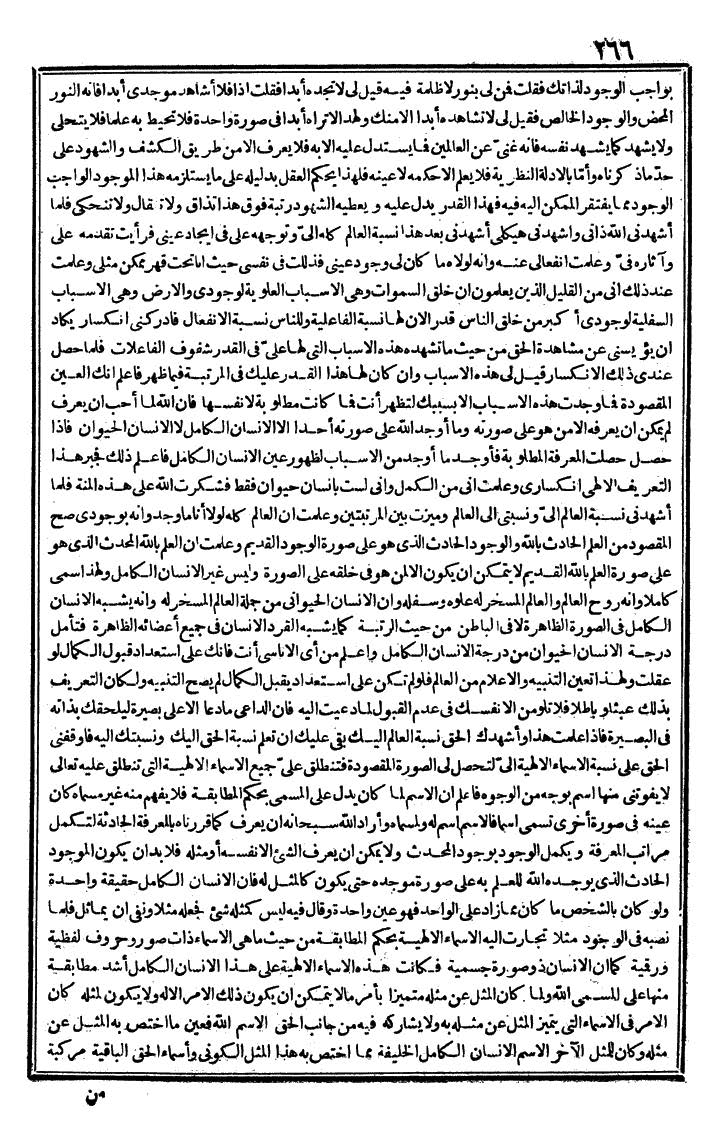 ٢٦٦
بواجب الوجود لذاتك فقلت فمن لى بنور لا ظلمة فيه قيل لى لا تجده أبدا فقلت اذا فلا أشاهد موجدى أبدا فانه النور
المحض والوجود الخالص فقيل لى لا تشاهده أبدا الا منك ولهذا لا تراه أبدا فى صورة واحدة فلا تحيط به علما فلا يتجلى
ولا يشهد كما يشهد نفسه فانه غنى عن العالمين فما يستدل عليه الا به فلا يعرف الا من طريق الكشف والشهود على
حدّ ماذكرناه وأمّا بالادلة النظرية فلا يعلم الا حكمه لا عينه فلهذا يحكم العقل بدليله على ما يستلزمه هذا الموجود الواجب
الوجود مما يفتقر الممكن اليه فيه فهذا القدر يدل عليه و يعطيه الشهود رتبة فوق هذا تذاق ولا تقال ولا تنحكى فلما
أشهدنى الله ذاتى واشهدنى هيكلى أشهدنى بعد هذا نسبة العالم كله الىّ وتوجهه على فى ايجاد عينى فرأيت تقدمه على
وآثاره فىّ وعلمت انفعالى عنه وانه لولاه ما كان لى وجود عينى فذللت فى نفسى حيث انا تحت قهر ممكن مثلى وعلمت
عند ذلك انى من القليل الذين يعلمون ان خلق السموات وهى الاسباب العلوية لوجودى والارض وهى الاسباب
السفلية لوجودى أكبر من خلق الناس قدر الان لها نسبة الفاعلية وللناس نسبة الانفعال فادركنى انكسار يكاد
ان يؤيسنى عن مشاهدة الحق من حيث ما تشهده هذه الاسباب التى لها علىّ فى القدر شفوف الفاعلات فلما حصل
عندى ذلك الانكسار قيل لى هذه الاسباب وان كان لها هذا القدر عليك فى المرتبة فيما ظهر فاعلم انك العين
المقصودة فما وجدت هذه الاسباب الا بسببك لتظهر أنت فما كانت مطلوبة لا نفسها فان الله لما أحب ان يعرف
لم يمكن ان يعرفه الا من هو على صورته وما أوجد الله على صورته أحدا الا الانسان الكامل لا الانسان الحيوان فاذا
حصل حصلت المعرفة المطلوبة فأوجد ما أوجد من الاسباب لظهور عين الانسان الكامل فاعلم ذلك فجبر هذا
التعريف الالهى انكسارى وعلمت انى من الكمل وانى لست بانسان حيوان فقط فشكرت الله على هذه المنة فلما
أشهدنى نسبة العالم الىّ ونسبتى الى العالم وميزت بين المرتبتين وعلمت ان العالم كله لولا أنا ما وجد وانه بوجودى صح
المقصود من العلم الحادث بالله والوجود الحادث الذى هو على صورة الوجود القديم وعلمت ان العلم بالله المحدث الذى هو
على صورة العلم بالله القديم لا يتمكن ان يكون الالمن هو فى خلقه على الصورة وليس غير الانسان الكامل ولهذا سمى
كاملا وانه روح العالم والعالم المسخر له علوه وسفله وان الانسان الحيوانى من جملة العالم المسخر له وانه يشبه الانسان
الكامل فى الصورة الظاهرة لا فى الباطن من حيث الرتبة كما يشبه القرد الانسان فى جميع أعضائه الظاهرة فتأمل
درجة الانسان الحيوان من درجة الانسان الكامل واعلم من أى الاناسى أنت فانك على استعداد قبول الكمال لو
عقلت ولهذا تعين التنبيه والاعلام من العالم فلو لم تكن على استعداد يقبل الكمال لم يصح التنبيه ولكان التعريف
بذلك عبثا وباطلا فلا تلومن الا نفسك فى عدم القبول لما دعيت اليه فان الداعى ما دعا الا على بصيرة ليلحقك بذاته
فى البصيرة فاذا علمت هذا وأشهدك الحق نسبة العالم اليك بقى عليك ان تعلم نسبة الحق اليك ونسبتك اليه فاوقفنى
الحق على نسبة الاسماء الالهية الىّ لتحصل لى الصورة المقصودة فتنطلق علىّ جميع الاسماء الالهية التى تنطلق عليه تعالى
لا يفوتنى منها اسم بوجه من الوجوه فاعلم ان الاسم لما كان يدل على المسمى بحكم المطابقة فلا يفهم منه غير مسماه كان
عينه فى صورة أخرى تسمى اسما فالاسم اسم له ولمسماه وأراد الله سبحانه ان يعرف كما قررناه بالمعرفة الحادثة لتكمل
مراتب المعرفة ويكمل الوجود بوجود المحدث ولا يمكن ان يعرف الشئ الا نفسه أو مثله فلا بد ان يكون الموجود
الحادث الذى يوجده الله للعلم به على صورة موجده حتى يكون كالمثل له فان الانسان الكامل حقيقة واحدة
ولو كان بالشخص ما كان مما زاد على الواحد فهو عين واحدة وقال فيه ليس كمثله شئ فجعله مثلا ونفى ان يماثل فلما
نصبه فى الوجود مثلا تجارت اليه الاسماء الالهية بحكم المطابقة من حيث ما هى الاسماء ذات صور وحروف لفظية
ورقمية كما ان الانسان ذو صورة جسمية فكانت هذه الاسماء الالهية على هذا الانسان الكامل أشد مطابقة
منها على المسمى الله ولما كان المثل عن مثله متميزا بأمر ما لا يتمكن ان يكون ذلك الامر الا له ولا يكون لمثله كان
الامر فى الاسماء التى يتميز المثل عن مثله به ولا يشاركه فيه من جانب الحق الاسم الله فعين ما اختص به المثل عن
مثله وكان للمثل الآخر الاسم الانسان الكامل الخليفة مما اختص به هذا المثل الكونى وأسماء الحق الباقية مركبة
من